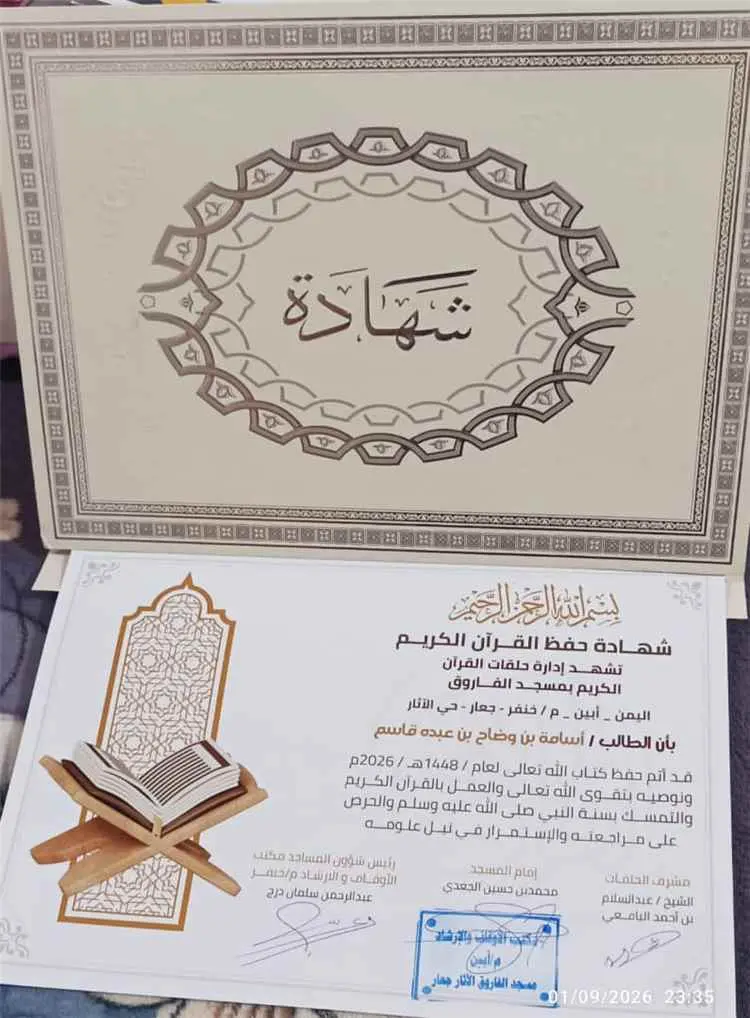 شهادة
بسم الله الرحمن الرحيم
شهـادة حفظ القـرآن الكريـم
تشهـد إدارة حلقات القرآن
الكريم بمسجد الفـاروق
اليمن _ أبين _ م / خنفر - جعار - حي الآثار
بأن الطالب / أسامة بن وضاح بن عبده قاسم
قد أتم حفظ كتاب الله تعالى لعام / 1448هـ / 2026م
ونوصيه بتقوى الله تعالى والعمل بالقرآن الكريم
والتمسك بسنة النبي صلى الله عليه وسلم والحرص
على مـراجعته والإستمـرار في نيل علومـه
مشرف الحلقات
الشيخ / عبدالسلام
بن أحمد اليافعي
إمام المسجد
محمدبن حسين الجعدي
رئيس شؤون المساجد مكتب
الأوقاف و الارشاد م/خنفر
عبدالرحمن سلمان درج
مكتب الأوقاف والإرشاد
م/أبين
مسجد الفاروق الآثار جعار
01/09/2026 23:35